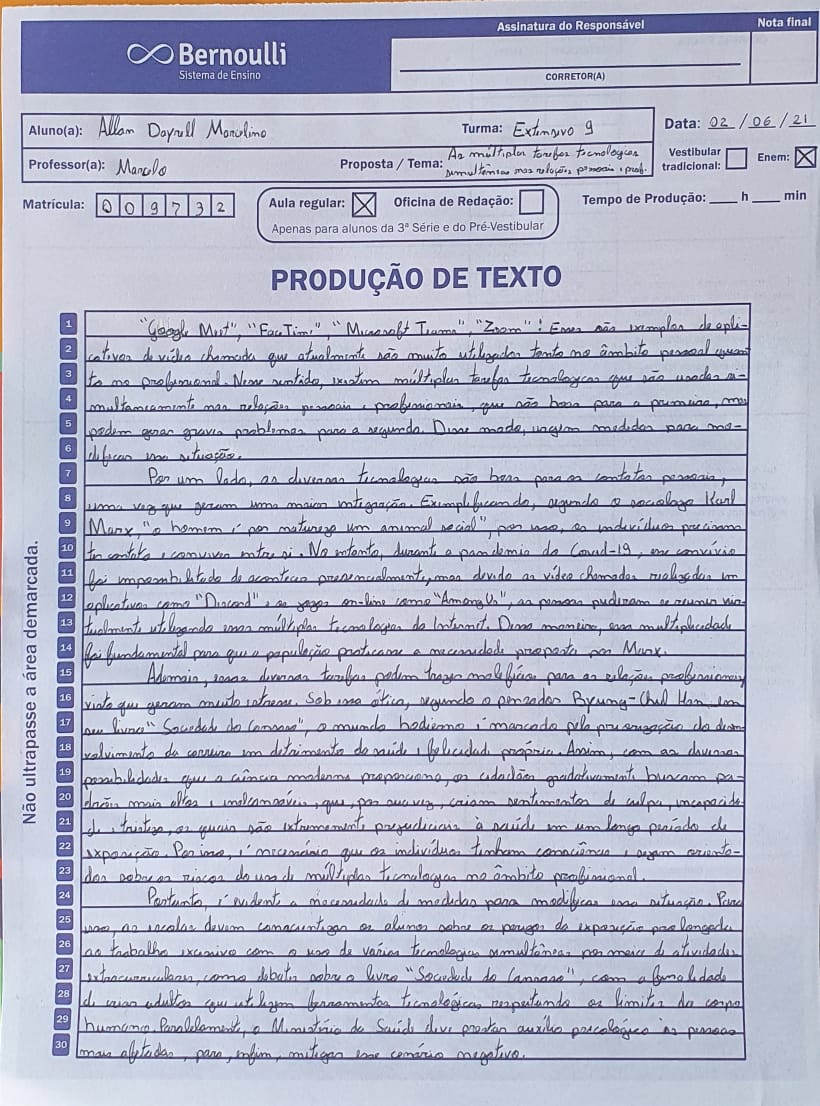 Assinatura do Responsável
Nota final
Bernoulli
Sistema de Ensino
CORRETOR(A)
Aluno(a): Allan Dayrell Marcolino
Turma: Extensivo 9
Data: 02/06/21
Professor(a): Marcelo
Proposta / Tema: As múltiplas tarefas tecnológicas
simultâneas nas relações pessoais e prof.
Vestibular
tradicional:
Enem: X
Matrícula: 009732
Aula regular: X
Oficina de Redação:
Tempo de Produção: ____ h ____ min
Apenas para alunos da 3ª Série e do Pré-Vestibular
PRODUÇÃO DE TEXTO
Não ultrapasse a área demarcada.
1 "Google Meet", "FaceTime", "Microsoft Teams", "Zoom"! Esses são exemplos de apli-
2 cativos de vídeo chamada que atualmente são muito utilizados tanto no âmbito pessoal quan
3 to no profissional. Nesse sentido, existem múltiplas tarefas tecnológicas que são usadas si-
4 multaneamente nas relações pessoais e profissionais, que são boas para a primeira, mas
5 podem gerar graves problemas para a segunda. Desse modo, urgem medidas para mo-
6 dificar essa situação.
7 Por um lado, as diversas tecnologias são boas para os contatos pessoais,
8 uma vez que geram uma maior integração. Exemplificando, segundo o sociólogo Karl
9 Marx, "o homem é por natureza um animal social", por isso, os indivíduos precisam
10 ter contato e conviver entre si. No entanto, durante a pandemia do Covid-19, esse convívio
11 foi impossibilitado de acontecer presencialmente, mas devido as vídeo chamadas realizadas em
12 aplicativos como "Discord" e ao jogos on-line como "Among Us", as pessoas puderam se reunir vir-
13 tualmente utilizando essas múltiplas tecnologias da Internet. Dessa maneira, essa multiplicidade
14 foi fundamental para que a população praticasse a necessidade proposta por Marx.
15 Ademais, essas diversas tarefas podem trazer malefícios para as relação profissionais,
16 visto que geram muito estresse. Sob essa ótica, segundo o pensador Byung-Chul Han, em
17 seu livro "Sociedade do Cansaço", o mundo hodierno é marcado pela priorização do desen
18 volvimento da carreira em detrimento da saúde e felicidade própria. Assim, com as diversas
19 possibilidades que a ciência moderna proporciona, os cidadãos gradativamente buscam pa-
20 drões mais altos e inalcansáveis, que, por sua vez, criam sentimentos de culpa, incapacida
21 de e tristeza, os quais são extremamente prejudiciais à saúde em um longo período de
22 exposição. Por isso, é necessário que os indivíduos tenham consciência e sejam orienta-
23 dos sobre os riscos do uso de múltiplas tecnologias no âmbito profissional.
24 Portanto, é evidente a necessidade de medidas para modificar essa situação. Para
25 isso, as escolas devem conscientizar os alunos sobre os perigos da exposição prolongada
26 ao trabalho excessivo com o uso de várias tecnologias simultâneas por meio de atividades
27 extracurriculares, como debates sobre o livro "Sociedade do Cansaço", com a finalidade
28 de criar adultos que utilizem ferramentas tecnológicas respeitando os limites do corpo
29 humano. Paralelamente, o Ministério da Saúde deve prestar auxílio psicológico às pessoas
30 mais afetadas, para, enfim, mitigar esse cenário negativo.